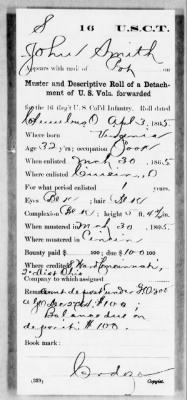 S 16 U.S.C.T.
John Smith
Appears with rank of Pvt on
Muster and Descriptive Roll of a Detach-
ment of U. S. Vols. forwarded
for the 16 Reg't U.S. Col'd Infantry. Roll dated
Columbus O Apl 3, 1865.
Where born Virginia
Age 32 y'rs; occupation Cook
When enlisted Mch 30, 1865.
Where enlisted Cincin, O
For what period enlisted 1 years.
Eyes ; hair
Complexion ; height 5 ft. 4 in.
When mustered in Mch 30, 1865.
Where mustered in Cincin
Bounty paid $ 100; due $ 100
Where credited
2 dist Ohio
Company to which assigned
Remarks: Amt deposit under G.O. 305
$100
Balance due on
deposit $100.
Book mark:
(339) Copyist.